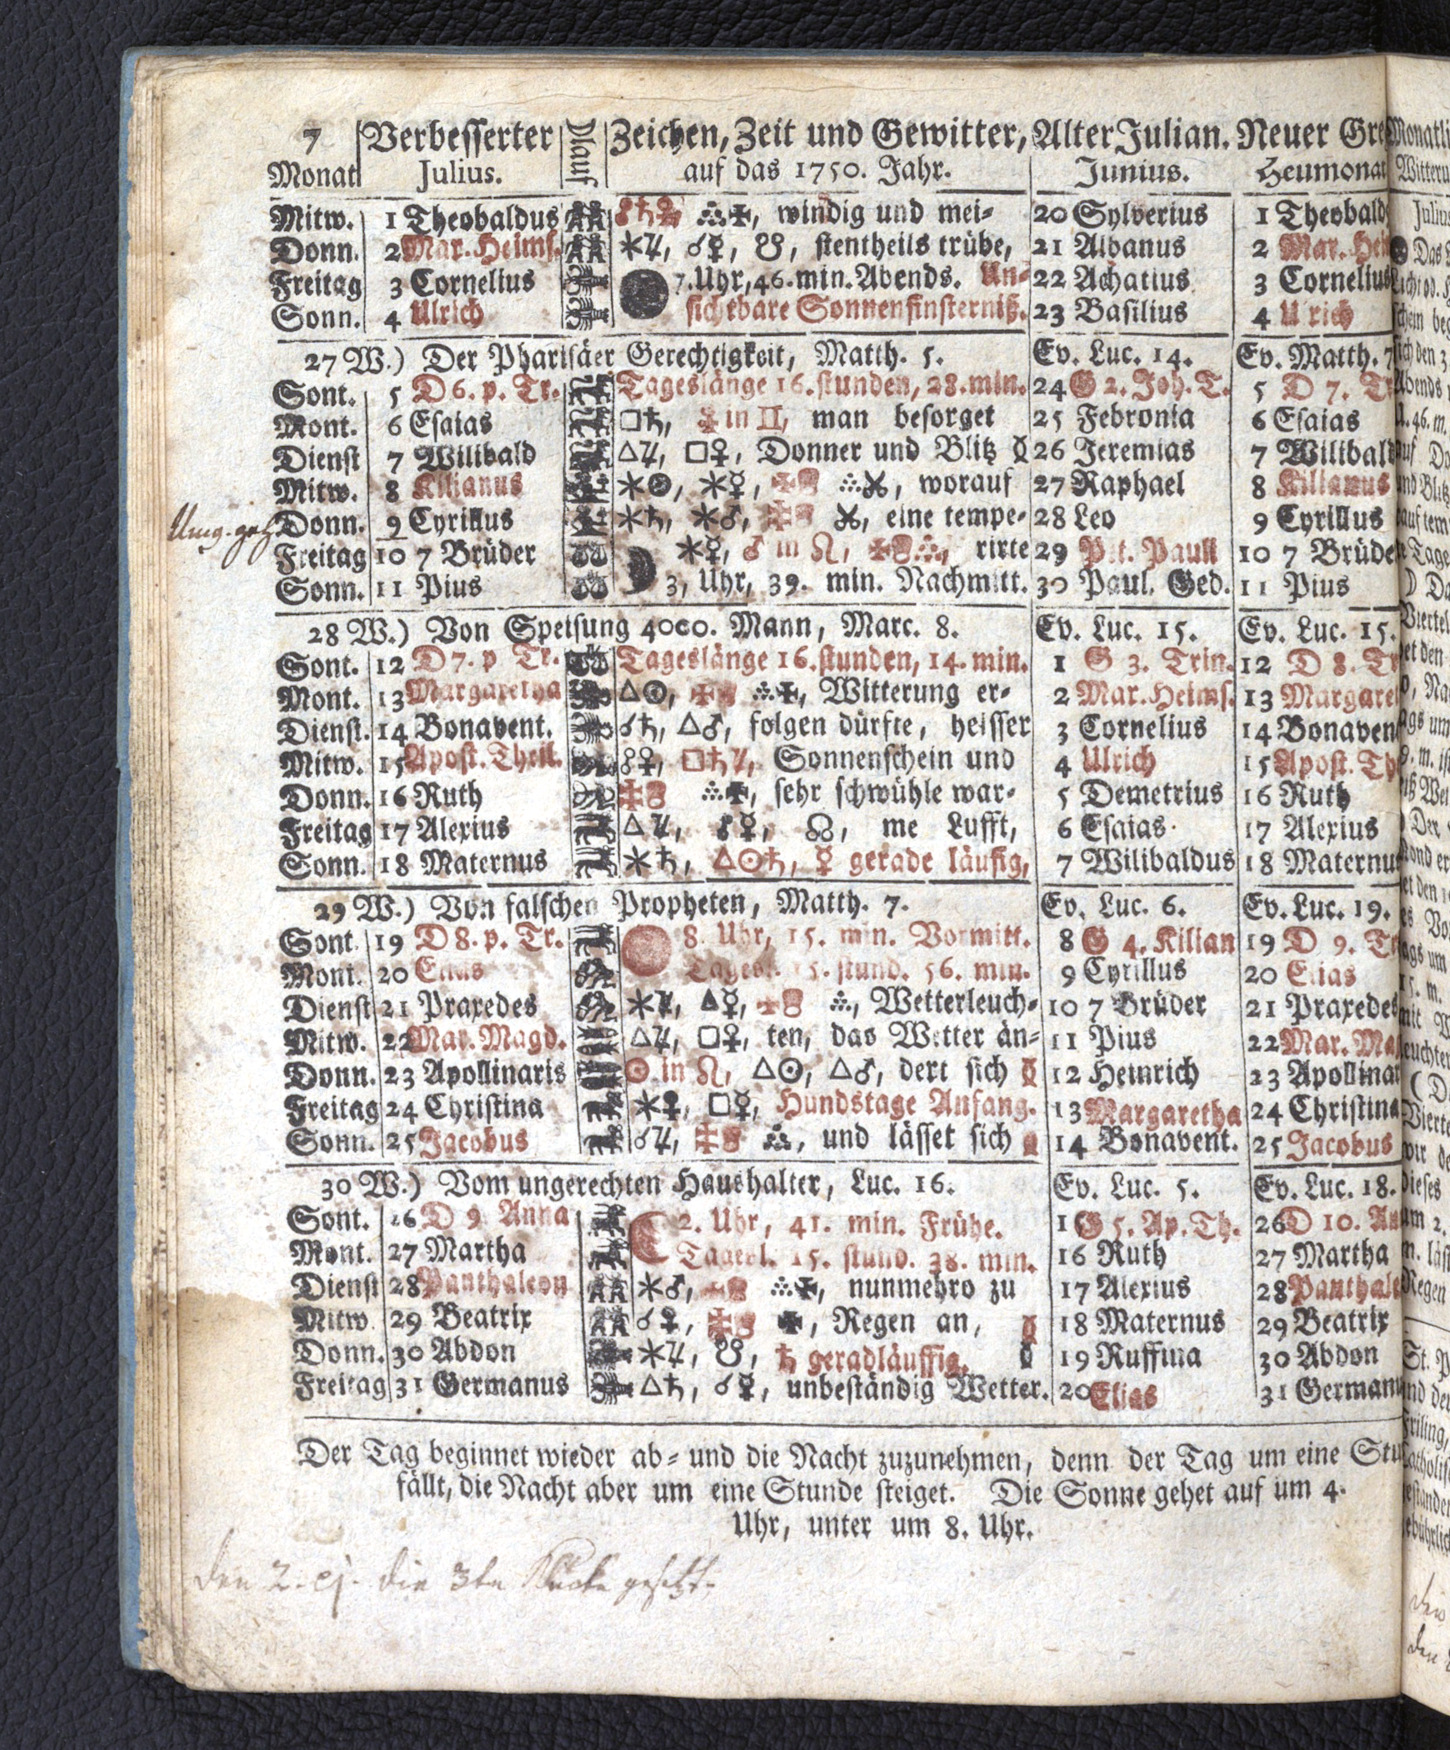 7 Verbesserter Zeichen, Zeit und Gewitter, Alter Julian. Neuer Gre
Monat Julius. Dlauf auf das 1750. Jahr. Junius. Heumonat
Mitw. 1 Theobaldus ☍♄♀, windig und mei- 20 Sylverius 1 Theobald
Donn. 2 Mar. Heims. ⚹♃, ☌☿, ☋, stentheils trübe, 21 Albanus 2 Mar. Hei
Freitag 3 Cornelius 7. Uhr, 46. min. Abends. Un- 22 Achatius 3 Cornelius
Sonn. 4 Ulrich sichtbare Sonnenfinsterniß. 23 Basilius 4 Ulrich
27 W.) Der Pharisäer Gerechtigkeit, Matth. 5. Ev. Luc. 14. Ev. Matth. 7
Sont. 5 D 6. p. Tr. Tageslänge 16. stunden, 28. min. 24 G 2. Joh. T. 5 D 7. Tr
Mont. 6 Esaias □♄, ♀ in ♊, man besorget 25 Febronia 6 Esaias
Dienst 7 Wilibald △♃, □♀, Donner und Blitz 26 Jeremias 7 Wilibal
Mitw. 8 Kilianus ⚹☉, ⚹☿, worauf 27 Raphael 8 Kilianus
Donn. 9 Cyrillus ⚹♄, ⚹♂, eine tempe- 28 Leo 9 Cyrillus
Freitag 10 7 Brüder ⚹☿, ♂ in ♌, rirte 29 Pet. Paull 10 7 Brüde
Sonn. 11 Pius 3, Uhr, 39. min. Nachmitt. 30 Paul. Ged. 11 Pius
28 W.) Von Speisung 4000. Mann, Marc. 8. Ev. Luc. 15. Ev. Luc. 15.
Sont. 12 D 7. p Tr. Tageslänge 16. stunden, 14. min. 1 G 3. Trin. 12 D 8. Tr
Mont. 13 Margaretha △☉, Witterung er- 2 Mar. Heims. 13 Margaret
Dienst. 14 Bonavent. ☌♄, △♂, folgen dürfte, heisser 3 Cornelius 14 Bonaven
Mitw. 15 Apost. Theil. ☍♀, □♄♃, Sonnenschein und 4 Ulrich 15 Apost. Th
Donn. 16 Ruth sehr schwühle war- 5 Demetrius 16 Ruth
Freitag 17 Alexius △♃, ☍☿, ☊, me Lufft, 6 Esaias 17 Alexius
Sonn. 18 Maternus ⚹♄, △☉♄, ☿ gerade läufig, 7 Wilibaldus 18 Maternus
29 W.) Von falschen Propheten, Matth. 7. Ev. Luc. 6. Ev. Luc. 19.
Sont. 19 D 8. p. Tr. 8. Uhr, 15. min. Vormitt. 8 G 4. Kilian 19 D 9. Tr
Mont. 20 Elias Tagesl. 15. stund. 56. min. 9 Cyrillus 20 Elias
Dienst 21 Praxedes ⚹♃, △☿, Wetterleuch- 10 7 Brüder 21 Praxedes
Mitw. 22 Mar. Magd. △♃, □♀, ten, das Wetter än- 11 Pius 22 Mar. Ma
Donn. 23 Apollinaris ☉ in ♌, △☉, △♂, dert sich 12 Heinrich 23 Apollinar
Freitag 24 Christina ⚹♀, □☿, Hundstage Anfang. 13 Margaretha 24 Christina
Sonn. 25 Jacobus ☌♃, und lässet sich 14 Bonavent. 25 Jacobus
30 W.) Vom ungerechten Haushalter, Luc. 16. Ev. Luc. 5. Ev. Luc. 18.
Sont. 26 D 9 Anna 2. Uhr, 41. min. Frühe. 1 G 5. Ap. Th. 26 D 10. An
Mont. 27 Martha Tagesl. 15. stund. 38. min. 16 Ruth 27 Martha
Dienst 28 Panthaleon ⚹♂, nunmehro zu 17 Alexius 28 Panthale
Mitw. 29 Beatrix ☌♀, Regen an, 18 Maternus 29 Beatrix
Donn. 30 Abdon ⚹♃, ☋, ♄ geradläuffig, 19 Ruffina 30 Abdon
Freitag 31 Germanus △♄, ☌☿, unbeständig Wetter. 20 Elias 31 Germanu
Der Tag beginnet wieder ab- und die Nacht zuzunehmen, denn der Tag um eine Stu
fällt, die Nacht aber um eine Stunde steiget. Die Sonne gehet auf um 4.
Uhr, unter um 8. Uhr.
den 2. ej. die 3te gesetzt.